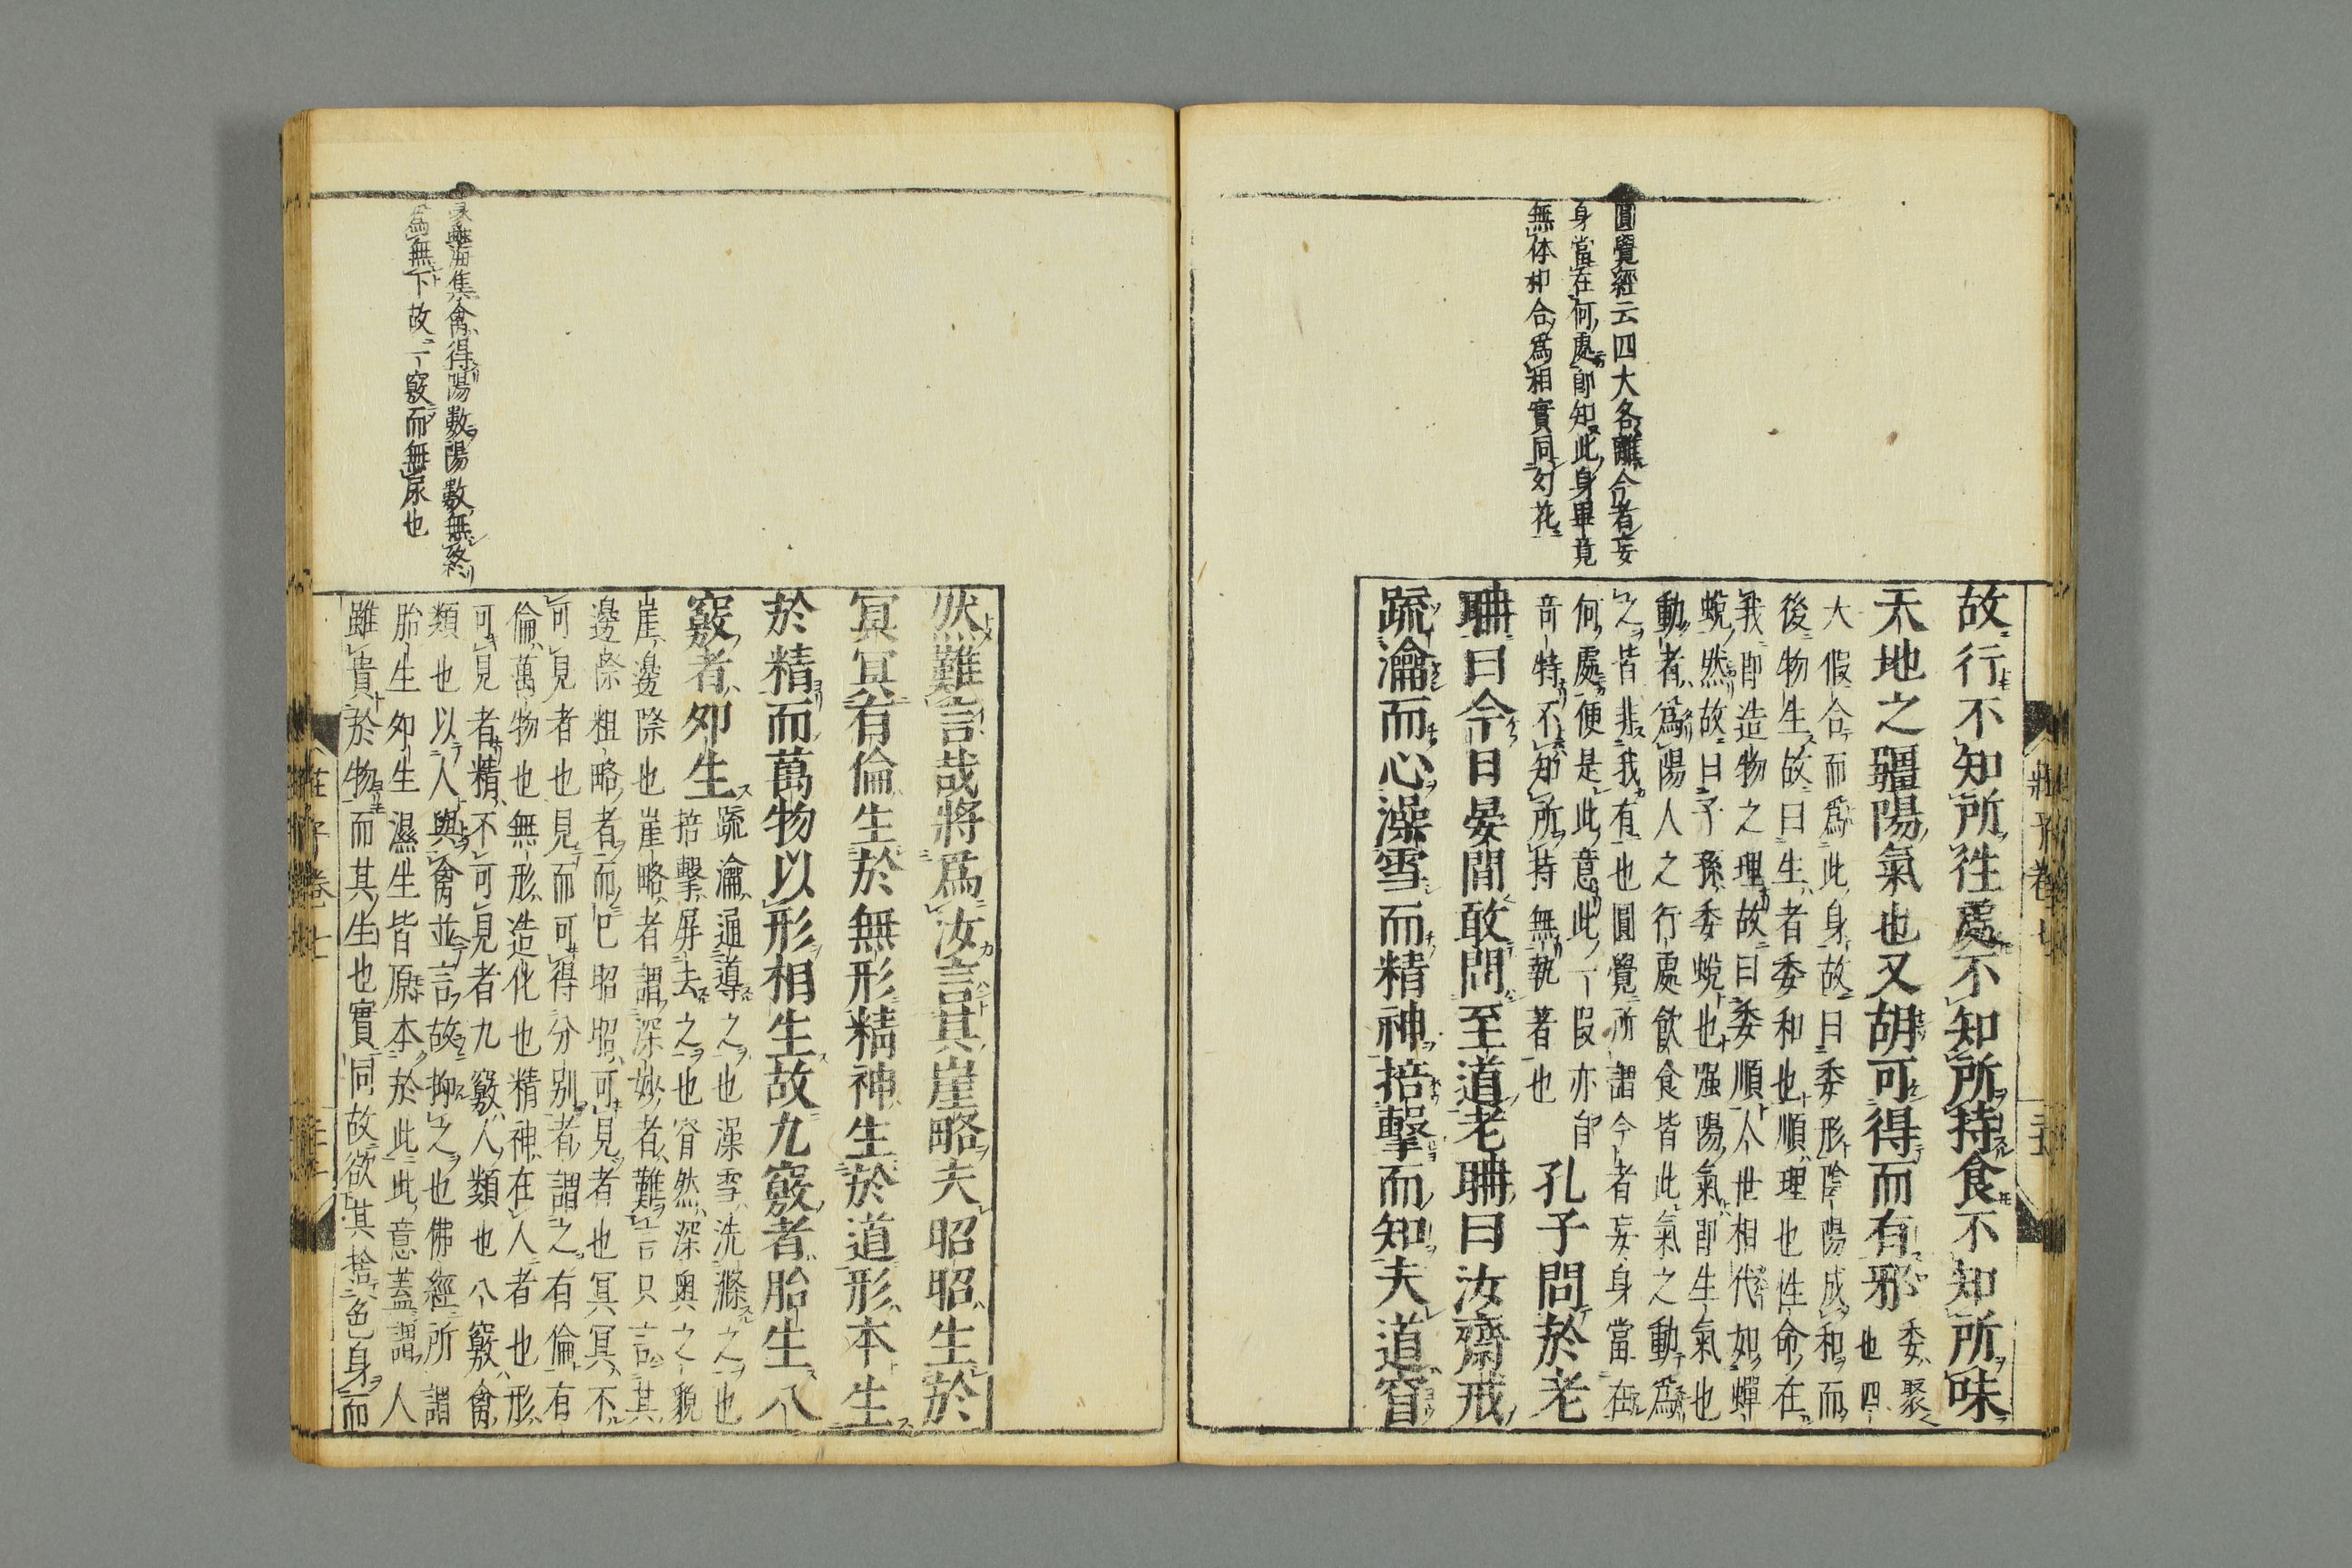 圓覺經云四大各離今者妄
身當在何處即知此身畢竟
無体和合爲相實同幻花
故行不知所往處不知所持食不知所味
天地之彊陽氣也又胡可得而有邪
委聚
也四
大假合而爲此身故曰委形陰陽成和而
後物生故曰生者委和也順理也性命在
我即造物之理故曰委順人人世相代如蟬
蛻然故曰子孫委蛻也强陽氣即生氣也
動者爲陽人之行處飲食皆此氣之動爲
之皆非我有也圓覺所謂今者妄身當在
何處便是此意此一段亦自
奇特不知所持無執著也
孔子問於老
聃曰今日晏間敢問至道老聃曰汝齋戒
疏瀹而心澡雪而精神掊擊而知夫道窅
莊子卷七
三十五
然難言哉將爲汝言其崖略夫昭昭生於
冥冥有倫生於無形精神生於道形本生
於精而萬物以形相生故九竅者胎生八
竅者卵生
疏瀹通導之也澡雪洗滌之也
掊擊屏去之也窅然深奧之貌
崖邊際也崖略者謂深妙者難言只言其
邊際粗略者而已昭昭可見者也冥冥不
可見者也見而可得分別者謂之有倫有
倫萬物也無形造化也精神在人者也形
可見者精不可見者九竅人類也八竅禽
類也以人與禽並言故抑之也佛經所謂
胎生卵生濕生皆原本於此此意蓋謂人
雖貴於物而其生也實同故欲其捨色身而
蠡海集禽得陽數陽數無終
爲無下故一竅而無尿也
莊子卷七